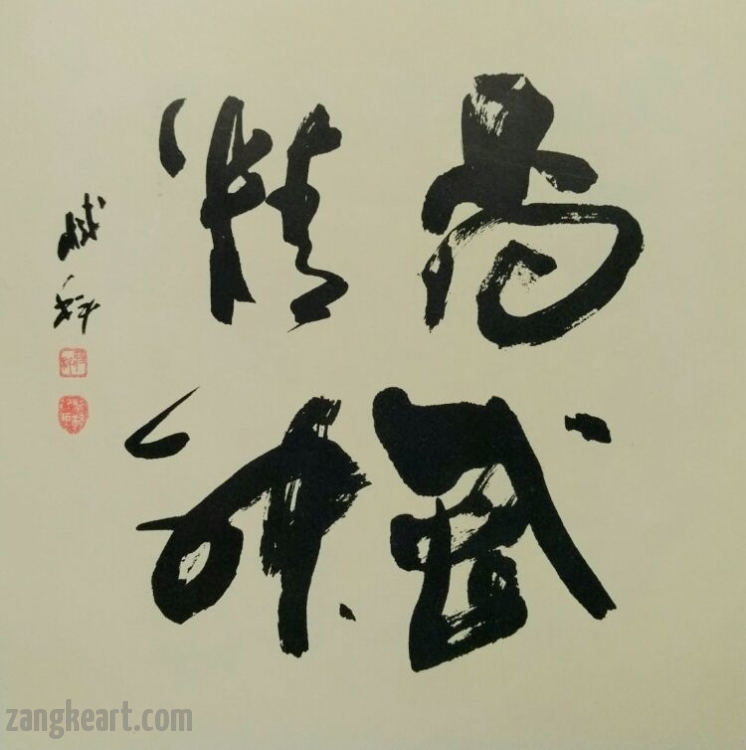 尚武
精神
臧科
zangkeart.com